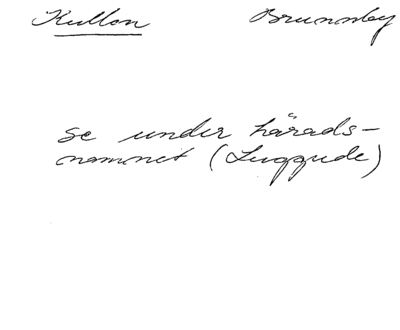 Kullon Brunnby
se under härads-
namnet (Luggude)